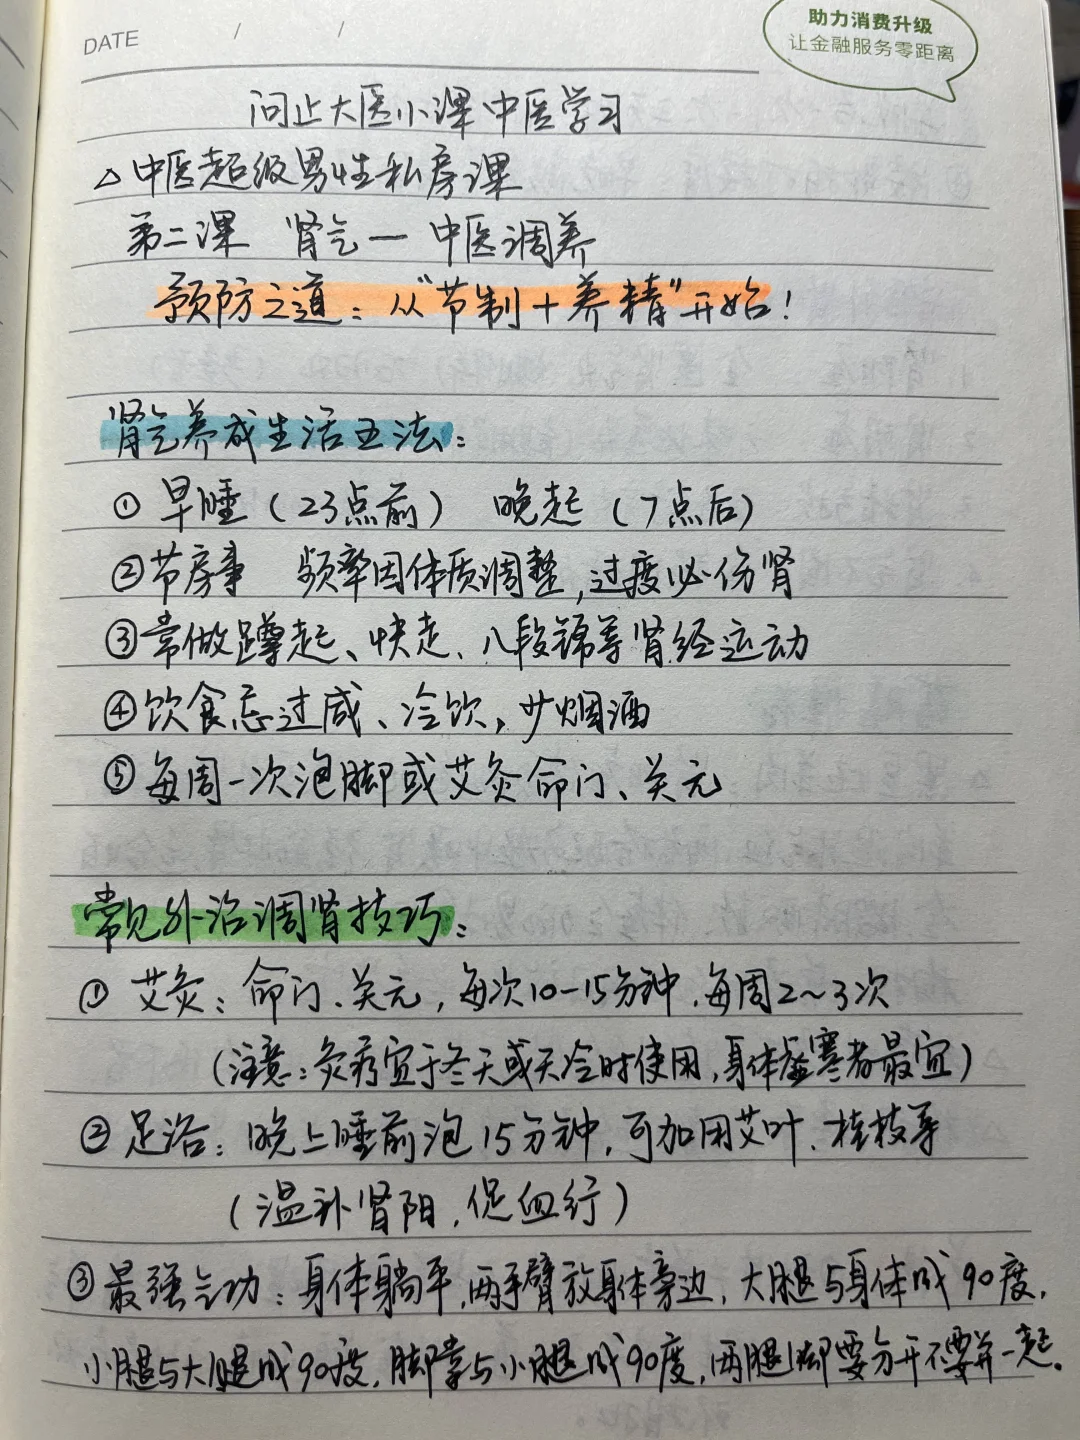 助力消费升级
让金融服务零距离
DATE / /
问止大医小课中医学习
△中医超级男性私房课
第二课 肾气一中医调养
预防之道：从“节制+养精”开始！
肾气养成生活五法：
①早睡（23点前） 晚起（7点后）
②节房事 频率因体质调整,过度必伤肾
③常做蹲起、快走、八段锦等肾经运动
④饮食忌过咸、冷饮，少烟酒
⑤每周一次泡脚或艾灸命门、关元
常见外治调肾技巧：
① 艾灸：命门、关元，每次10-15分钟，每周2~3次
（注意：灸疗宜于冬天或天冷时使用，身体虚寒者最宜）
② 足浴：晚上睡前泡15分钟，可加用艾叶、桂枝等
（温补肾阳，促血行）
③最强气功：身体躺平，两手臂放身体旁边，大腿与身体成90度，
小腿与大腿成90度，脚掌与小腿成90度，两腿脚要分开不要并一起。